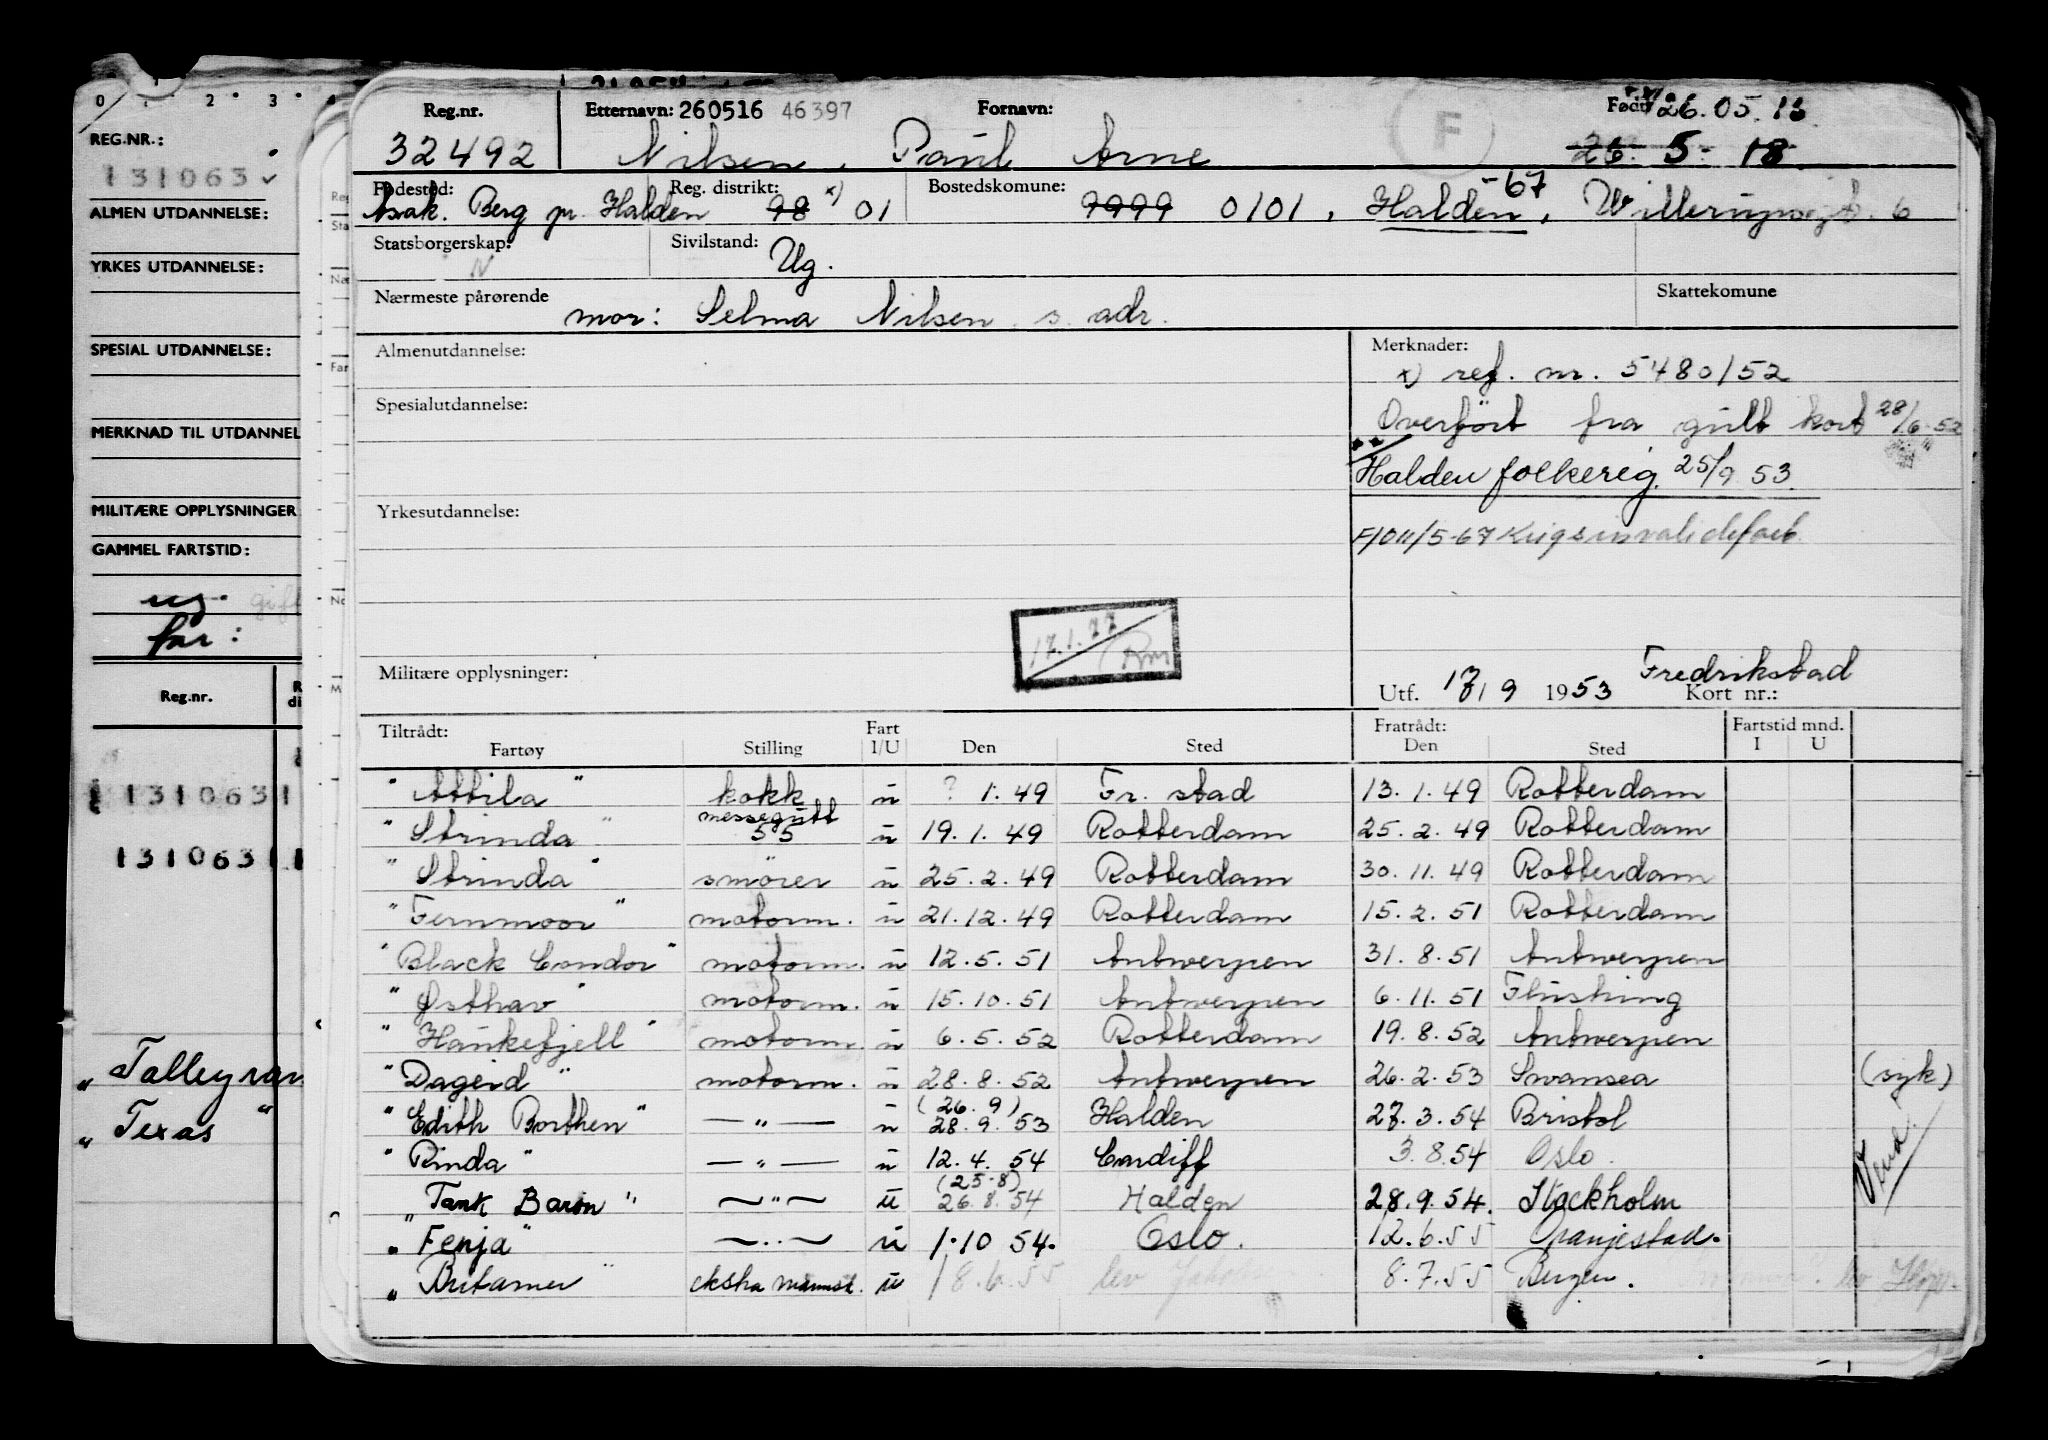 0 1 2 3
REG.NR.:
131063
ALMEN UTDANNELSE:
YRKES UTDANNELSE:
SPESIAL UTDANNELSE:
MERKNAD TIL UTDANNEL
MILITÆRE OPPLYSNINGER
GAMMEL FARTSTID:
ug. gift
far:
Reg.nr.
131063
131063
„ Talleyran
„ Texas "
Reg.nr. Etternavn: 260516 46397 Fornavn: F Født: 26.05.16
32492 Nilsen, Paul Arne 26. 5- 18
Fødested: Reg. distrikt: x) Bostedskomune: -67
Asak. Berg pr. Halden 98 01 9999 0101, Halden, 6
Statsborgerskap: Sivilstand:
N Ug.
Nærmeste pårørende Skattekomune
mor: Selma Nilsen s. adr.
Almenutdannelse: Merknader:
x) reg. nr. 5480/52
Spesialutdannelse: Overført fra gult kort 28/6-52
Halden folkereg. 25/9 53.
Yrkesutdannelse:
F/O 11/5-67 Krigsinvalidefort.
17.1.77
Rm
Militære opplysninger: Fredrikstad
Utf. 17/9 1953 Kort nr.:
Tiltrådt: Fart Fratrådt: Fartstid mnd.
Fartøy Stilling I/U Den Sted Den Sted I U
"Attila" kokk u ? 1.49 Fr. stad 13.1.49 Rotterdam
"Strinda" messegutt 55 u 19.1.49 Rotterdam 25.2.49 Rotterdam
"Strinda" smører u 25.2.49 Rotterdam 30.11.49 Rotterdam
"Fernmoor" motorm. u 21.12.49 Rotterdam 15.2.51 Rotterdam
"Black Condor" motorm. u 12.5.51 Antwerpen 31.8.51 Antwerpen
"Østhav" motorm. u 15.10.51 Antwerpen 6.11.51 Flushing
"Haukefjell" motorm. u 6.5.52 Rotterdam 19.8.52 Antwerpen
"Dageid" motorm. u 28.8.52 Antwerpen 26.2.53 Swansea (syk)
"Edith Borthen" — " — u (26.9) 28.9.53 Halden 27.3.54 Bristol
"Rinda" — " — u 12.4.54 Cardiff 3.8.54 Oslo. Vend.
„Tank Baron" — " — u (25.8) 26.8.54 Halden 28.9.54. Stockholm
„Fenja" — " — u 1.10 54. Oslo. 12.6.55 Oranjestad.
„Britamer" eksha mannsk. u 18.6.55 lev 8.7.55 Bergen.